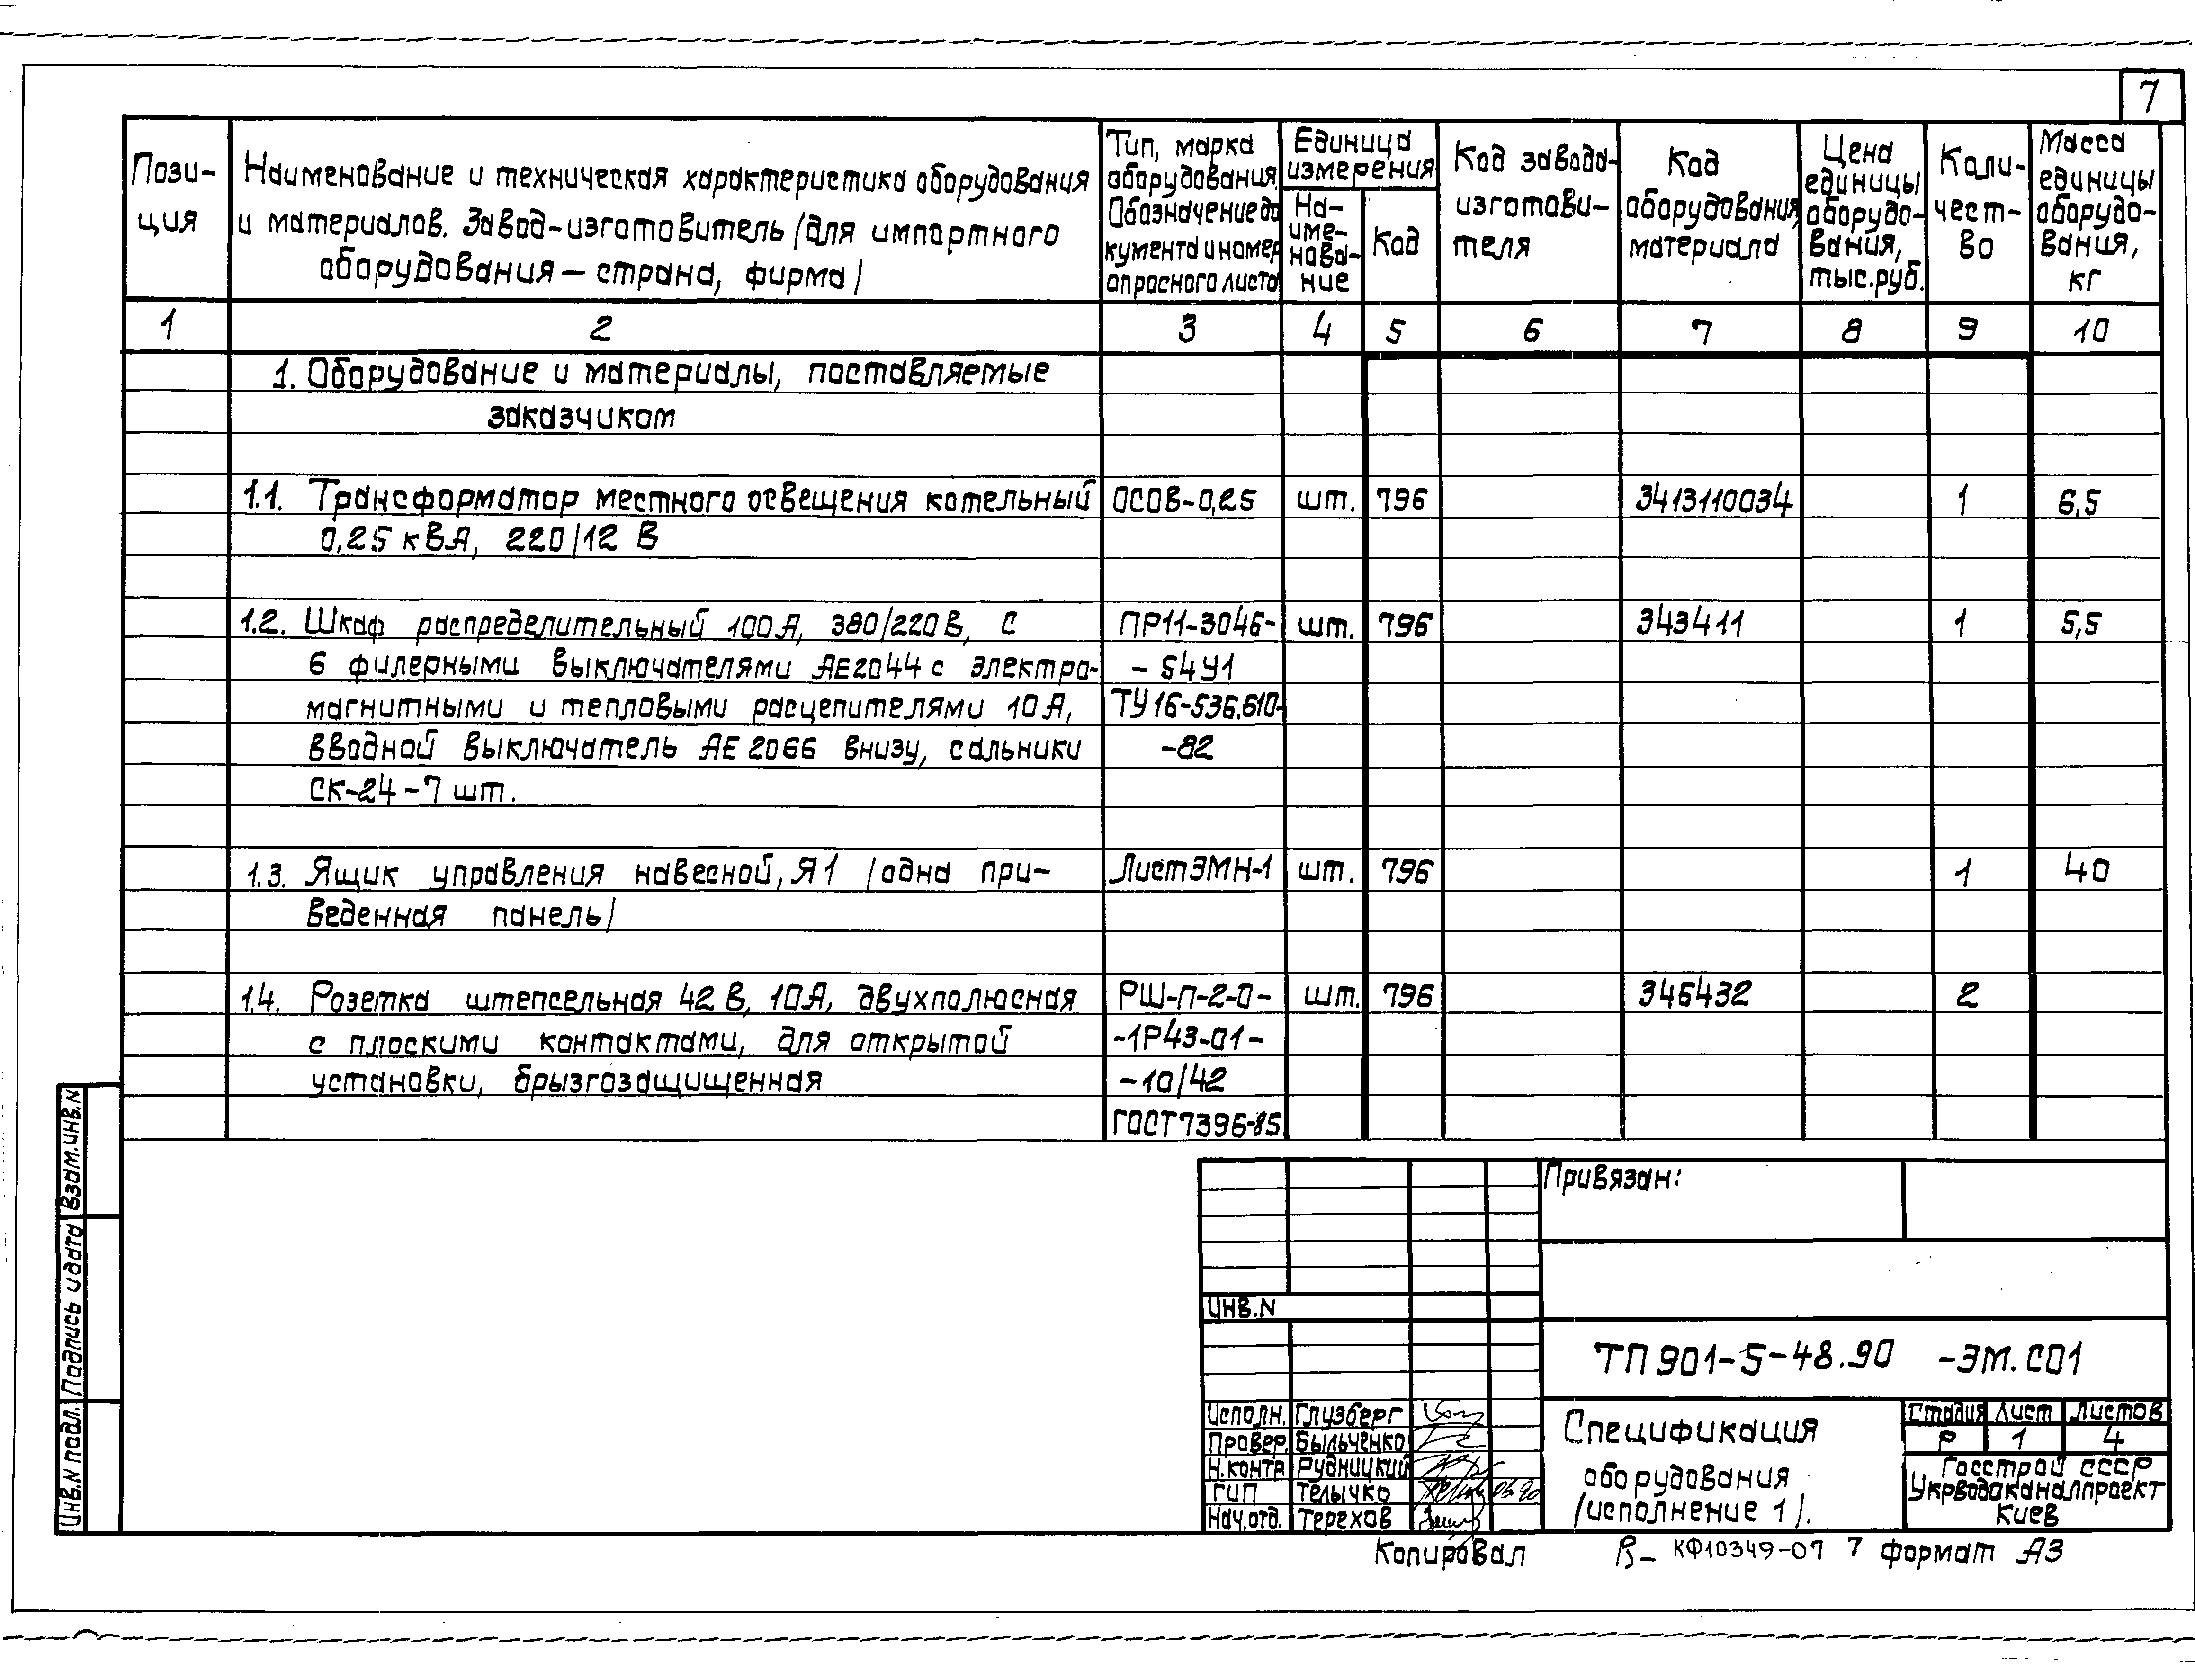 7
Пози-
ция
Наименование и техническая характеристика оборудования
и материалов. Завод-изготовитель /для импортного
оборудования – страна, фирма/
Тип, марка
оборудования.
Обозначение до
кумента и номер
опросного листа
Единица
измерения
На-
име-
нова-
ние
Код
Код завода-
изготови-
теля
Код
оборудования,
материала
Цена
единицы
оборудо-
вания,
тыс.руб.
Коли-
чест-
во
Масса
единицы
оборудо-
вания,
кг
1 2 3 4 5 6 7 8 9 10
1. Оборудование и материалы, поставляемые
заказчиком
1.1. Трансформатор местного освещения котельный ОСОВ-0,25 шт. 796 3413110034 1 6,5
0,25 кВА, 220/12 В
1.2. Шкаф распределительный 100А, 380/220В, с ПР11-3046- шт. 796 343411 1 5,5
6 филерными выключателями АЕ2044 с электро- - 54У1
магнитными и тепловыми расцепителями 10А, ТУ16-536.610-
вводной выключатель АЕ 2066 внизу, сальники -82
СК-24 - 7 шт.
1.3. Ящик управления навесной, Я1 /одна при- Лист ЭМН-1 шт. 796 1 40
веденная панель/
1.4. Розетка штепсельная 42 В, 10А, двухполюсная РШ-П-2-0- шт. 796 346432 2
с плоскими контактами, для открытой -1Р43-01-
установки, брызгозащищенная -10/42
ГОСТ 7396-85
Взам.инв.N
Подпись и дата
Инв.N подл.
Привязан:
Инв.N
ТП 901-5-48.90 -ЭМ.СО1
Исполн. Глузберг
Провер. Быльченко
Н.контр Рудницкий
ГИП Телычко 06.90
Нач.отд. Терехов
Спецификация
оборудования
/исполнение 1/.
Стадия Лист Листов
Р 1 4
Госстрой СССР
Укрводоканалпроект
Киев
Копировал КФ10349-07 7 формат А3